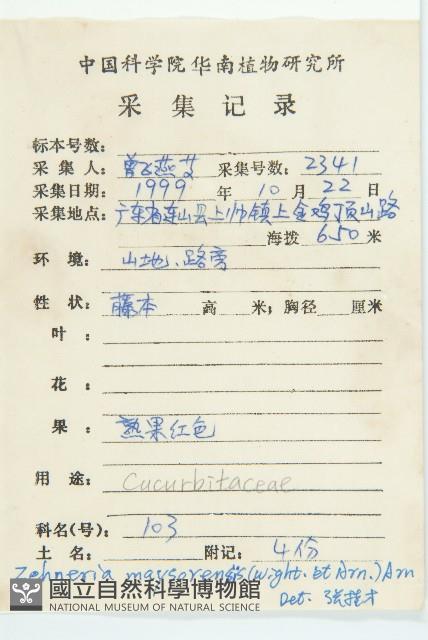 中国科学院华南植物研究所
采集记录
标本号数:
采集人: 曾飞燕 采集号数: 2341
采集日期: 1999 年 10 月 22 日
采集地点: 广东省连山县上帅镇上金鸡顶山路
海拨 650 米
环境: 山地、路旁
性状: 藤本 高 米; 胸径 厘米
叶:
花:
果: 熟果红色
用途: Cucurbitaceae
科名(号): 103
土名: 附记: 4份
Zehneria maysorensis (Wight. et Arn.) Arn
Det.
國立自然科學博物館
NATIONAL MUSEUM OF NATURAL SCIENCE